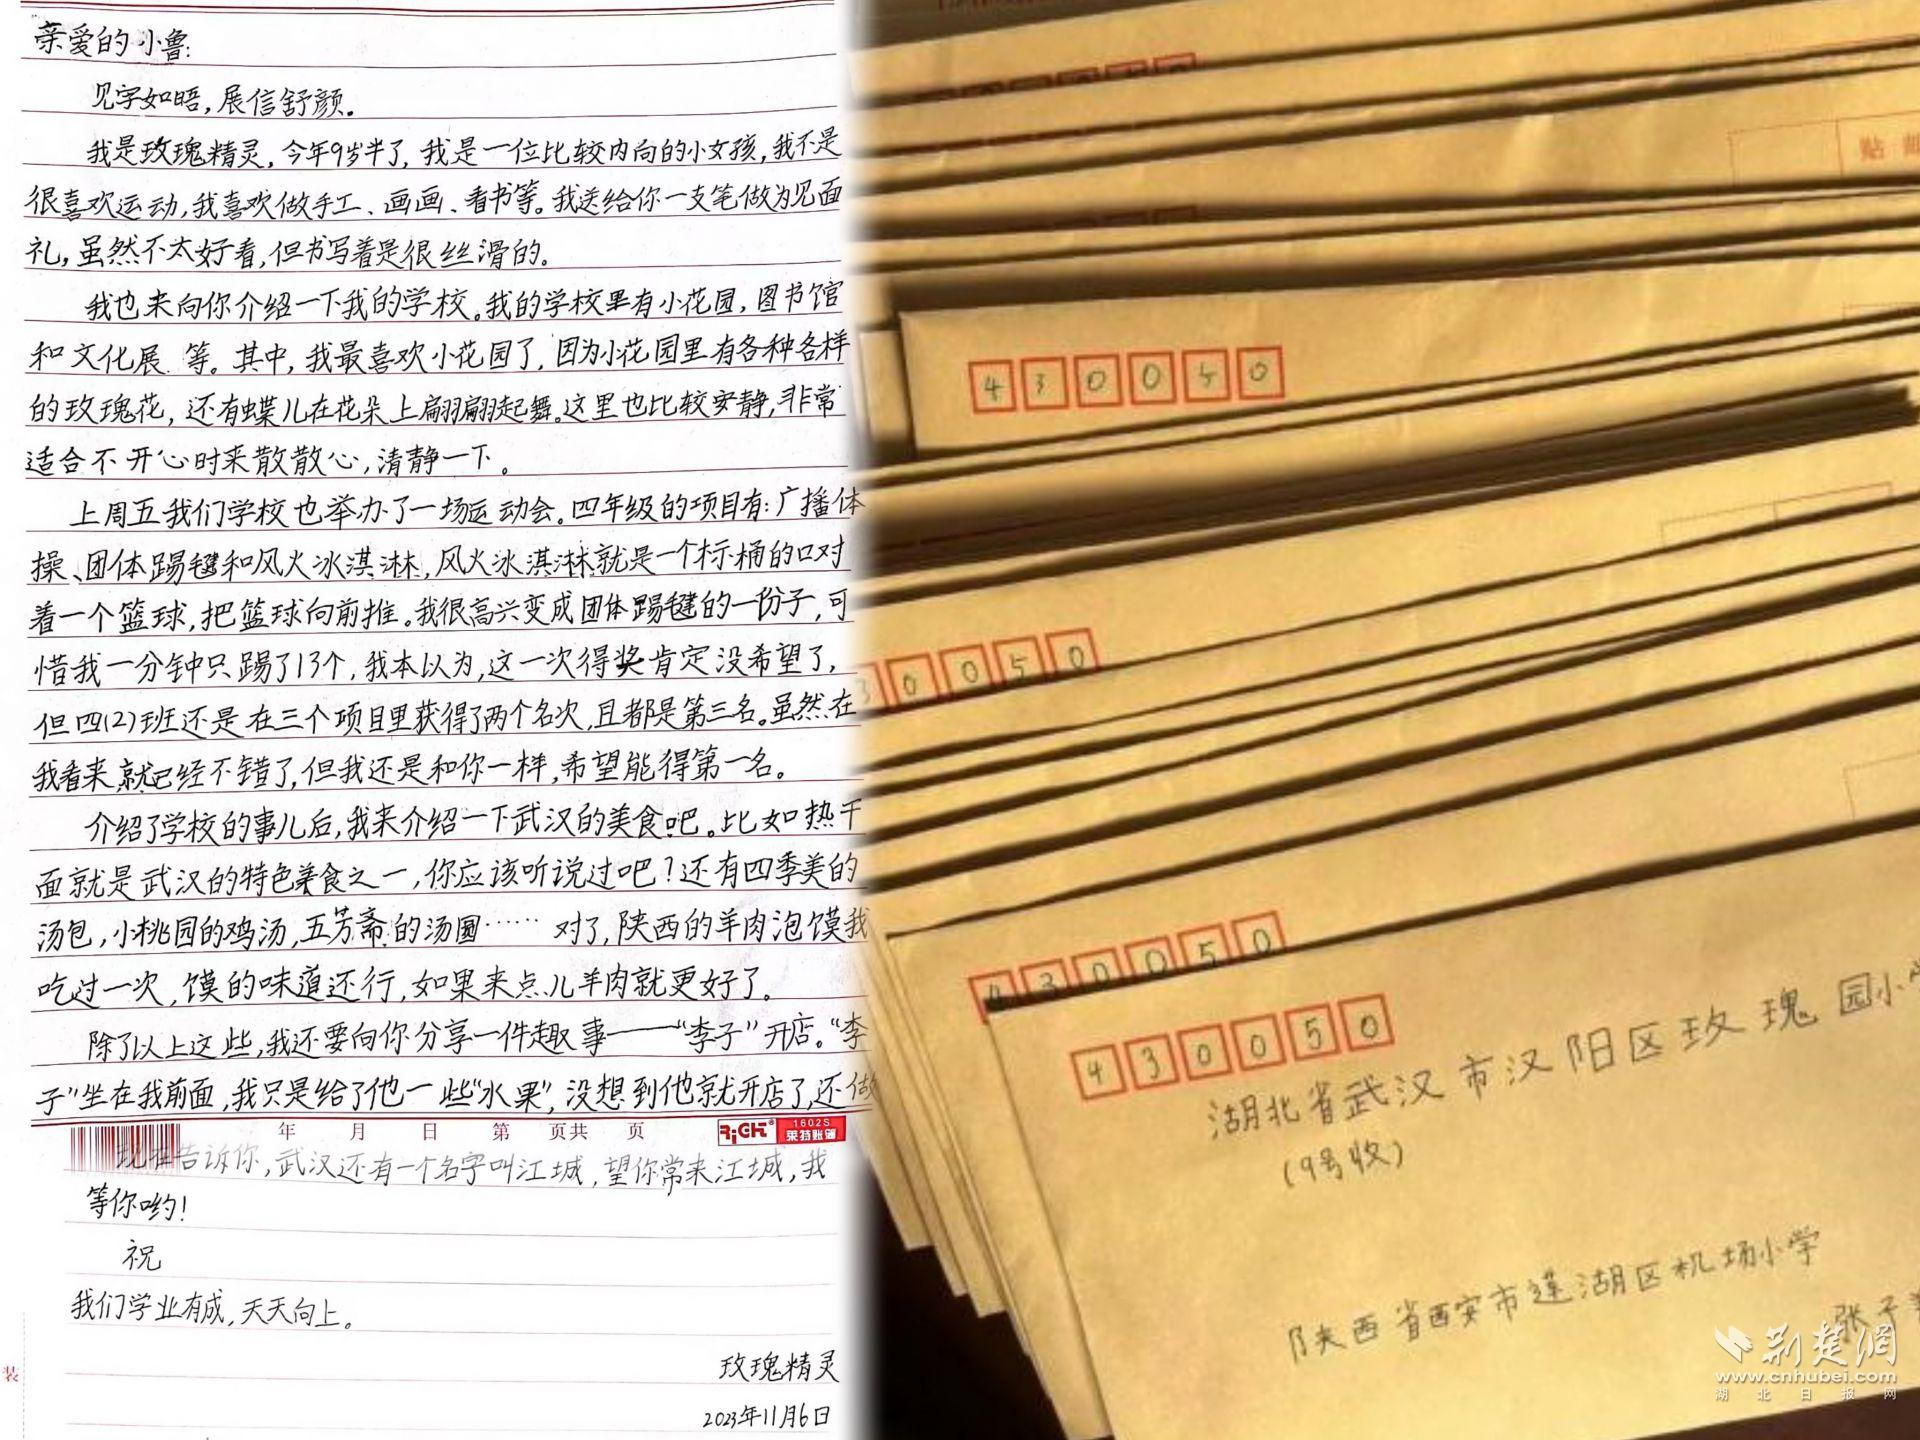 亲爱的小鲁:
见字如晤,展信舒颜。
我是玫瑰精灵,今年9岁半了,我是一位比较内向的小女孩,我不是
很喜欢运动,我喜欢做手工、画画、看书等。我送给你一支笔做为见面
礼,虽然不太好看,但书写着是很丝滑的。
我也来向你介绍一下我的学校。我的学校里有小花园,图书馆
和文化展等。其中,我最喜欢小花园了,因为小花园里有各种各样
的玫瑰花,还有蝶儿在花朵上翩翩起舞。这里也比较安静,非常
适合不开心时来散散心,清静一下。
上周五我们学校也举办了一场运动会。四年级的项目有:广播体
操、团体踢毽和风火冰淇淋,风火冰淇淋就是一个标桶的口对
着一个篮球,把篮球向前推。我很高兴变成团体踢毽的一份子,可
惜我一分钟只踢了13个,我本以为,这一次得奖肯定没希望了,
但四(2)班还是在三个项目里获得了两个名次,且都是第三名。虽然在
我看来就已经不错了,但我还是和你一样,希望能得第一名。
介绍了学校的事儿后,我来介绍一下武汉的美食吧。比如热干
面就是武汉的特色美食之一,你应该听说过吧?还有四季美的
汤包,小桃园的鸡汤,五芳斋的汤圆……对了,陕西的羊肉泡馍我
吃过一次,馍的味道还行,如果来点儿羊肉就更好了。
除了以上这些,我还要向你分享一件趣事——“李子”开店。“李
子”坐在我前面,我只是给了他一些“水果”,没想到他就开店了,还做
年 月 日 第 页共 页
RiGHT® 1602S
莱特账簿
现在告诉你,武汉还有一个名字叫江城,望你常来江城,我
等你哟!
祝
我们学业有成,天天向上。
玫瑰精灵
2023年11月6日
装
贴邮
430050
30050
430050
430050
湖北省武汉市汉阳区玫瑰园小学
(9号收)
陕西省西安市莲湖区机场小学
张子
荆楚网
www.cnhubei.com
湖北日报网